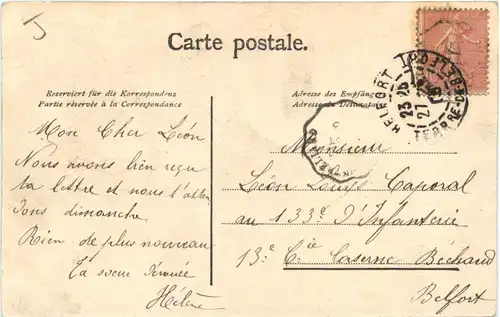 Carte postale.
Reserviert für die Korrespondenz
Partie réservée à la Correspondance
Adresse des Empfäng
Adresse du Destinat
BELFORT
23 25
27
Mon Cher Léon
Nous avons bien reçu
ta lettre et nous t'atten
dons dimanche
Rien de plus nouveau
Ta soeur dévouée
Hélène
Monsieur
Léon Louys Caporal
au 133e d'Infanterie
13e Cie Caserne Béchaud
Belfort